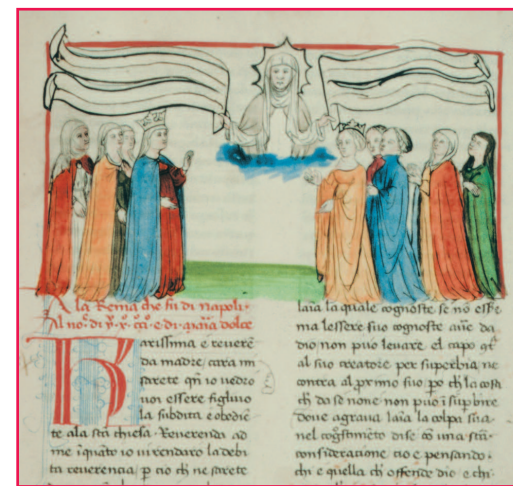 A la Reina che fu di napoli.
Al no. di y. x. cō. e di. maria dolce
Karissima e reuerē
da madre cara im
sarete qn̄ io uedro
uoi essere figliuo
la subdita e obediē
te ala scā chiesa. Reuerenda ad
me īquāto io ui rendaro la debi
ta reuerencia, p cio ch ne sarete
laīa la quale cognosce se nō esse
ma lessere suo cognosce auē da
dio non puo leuare. el capo
al suo creatore per superbia ne
contra al primo suo. po ch la cosa
ch da se none non puo īsupbire
doue agraua laīa la colpa sua
nel cognoscimēto di se cō una scā
consideracione, cio e pensando.
chi e quella ch offende dio e chi